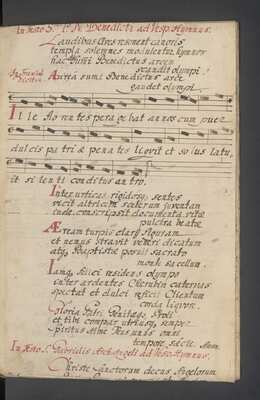 In Festo S. P. N. Benedicti ad Vesp. Hymnus.
Laudibus Cives resonent canoris
templa solemnes modulentur hymnos
hac Die Benedictus arcem
scandit olympi.
Aurea summi Benedictus arce
gaudet olympi.
Ille florentes peragebat annos cum puer
dulcis patriæ penates liquit et solus latu
it silenti conditus antro.
Inter urticas rigidosq; sentes
vicit altricem scelerum juventam
inde conscripsit documenta vitæ
pulchra beatæ
Æream turpis clarij figuram
et nemus stravit veneri dicatum
atq; Baptistæ posuit sacrato
monte sacellum.
Jamq; felici residens olympo
inter ardentes Cherubin catervas
spectat et dulci reficit Clientum
corda liquore.
Gloria Patri Genitæq; Proli
et tibi compar utriusq; semper
Spiritus Alme Deus unus omni
tempore sæcli. Amen.
In Festo S. Gabrielis Archangeli ad Vesp. Hymnus.
Christe Sanctorum decus Angelorum